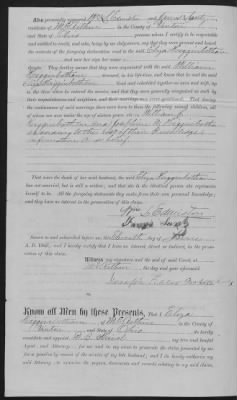 Also personally appeared Wm. L. Edmiston and James Lantz
of McArthur in the County of Vinton
and State of Ohio persons whom I certify to be respectable
and entitled to credit, and who, being by me duly sworn, say that they were present and heard
the contents of the foregoing declaration read to the Eliza Higginbotham
and saw her sign her name
thereto: They further say that they were acquainted with the said William
Higginbotham deceased, in his life-time, and know that he and the said
Eliza Higginbotham lived and cohabited together as man and wife, up
to the time when he entered the service, and that they were generally recognized as such by
their acquaintances and neighbors, and their marriage was never questioned. That during
the continuance of said marriage there were born to them the following named children, all
of whom are now under the age of sixteen years: William
Higginbotham and
according to the best of their knowledge
information & belief
That since the death of her said husband, the said Eliza Higginbotham
has not married, but is still a widow; and that she is the identical person she represents
herself to be. All the foregoing statements they make from their own personal knowledge; and
they have no interest in the prosecution of this claim.
L. Edmiston
James Lantz
Sworn to and subscribed before me, this day of
A. D. 186 , and I certify that I have no interest direct or indirect in the prosecution
of this claim.
Witness my signature and the seal of said Court, at
McArthur the day and year aforesaid.
Joseph
Know all Men by these Presents, That Eliza
Higginbotham of McArthur in the County of
Vinton and State of Ohio
constitute and appoint my true and lawful
Agent and Attorney, for me and in my name to prosecute the claim presented by me
for a pension by reason of the service of my late husband; and I do hereby authorize my
said Attorney to examine all papers, documents and records relating to my said claim,